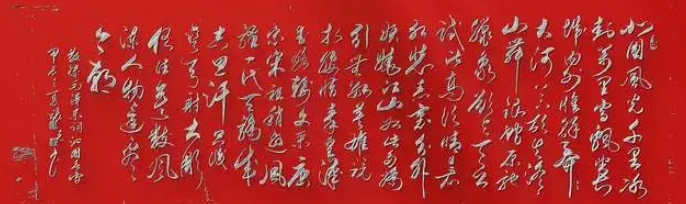 北国风光千里冰
封万里雪飘望长
城内外惟余莽莽
大河上下顿失滔滔
山舞银蛇原驰
蜡象欲与天公
试比高须晴日看
红装素裹分外
妖娆江山如此多娇
引无数英雄竞
折腰惜秦皇汉
武略输文采唐
宗宋祖稍逊风
骚一代天骄成
吉思汗只识
弯弓射大雕
俱往矣数风
流人物还看
今朝
毛泽东词沁园春雪